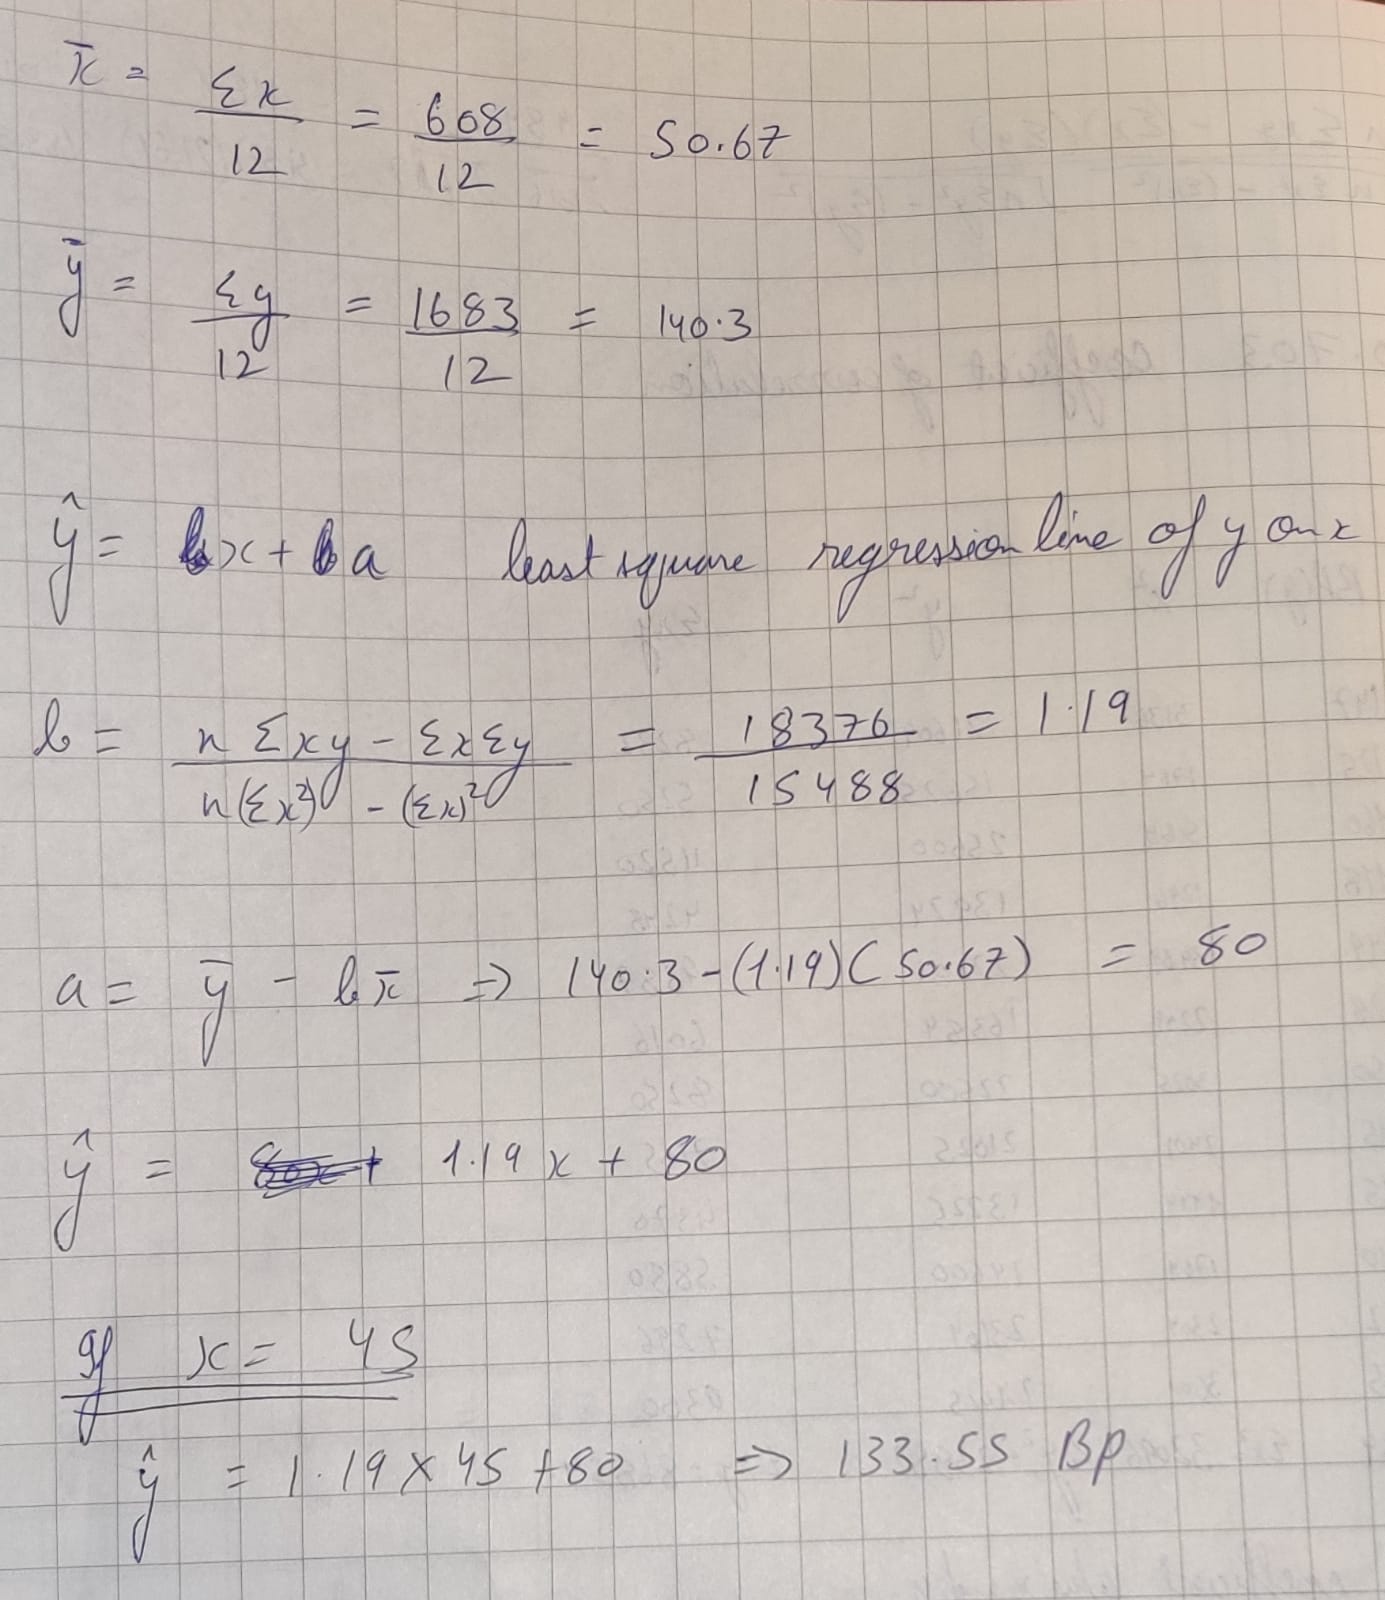 x̄ = Σx/12 = 608/12 = 50.67
ȳ = Σy/12 = 1683/12 = 140.3
ŷ = bx + a least square regression line of y on x
b = nΣxy - ΣxΣy / n(Σx²) - (Σx)² = 18376/15488 = 1.19
a = ȳ - bx̄ => 140.3 - (1.19)(50.67) = 80
ŷ = 1.19x + 80
If x = 45
ŷ = 1.19 × 45 + 80 => 133.55 BP